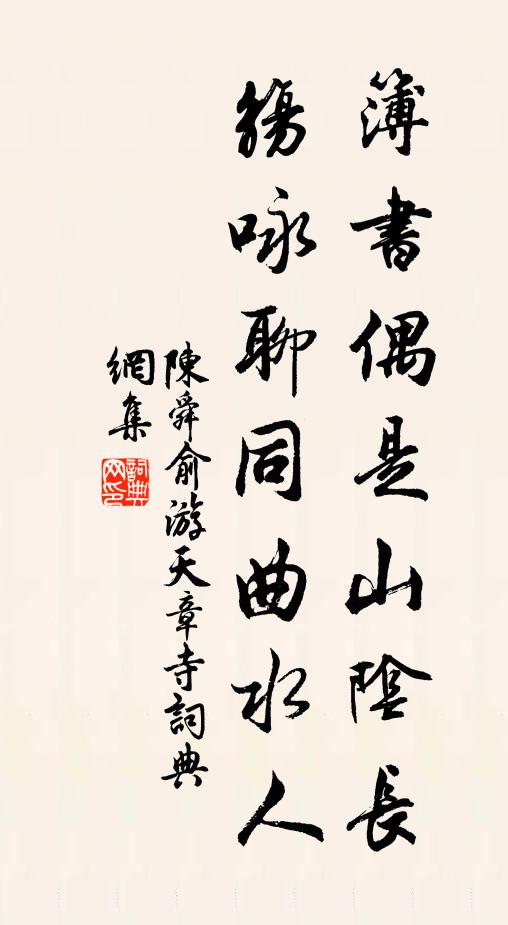 簿書偶是山陰長
觴咏聊同曲水人
陳舜俞游天章寺詞典
網集
詞典網印